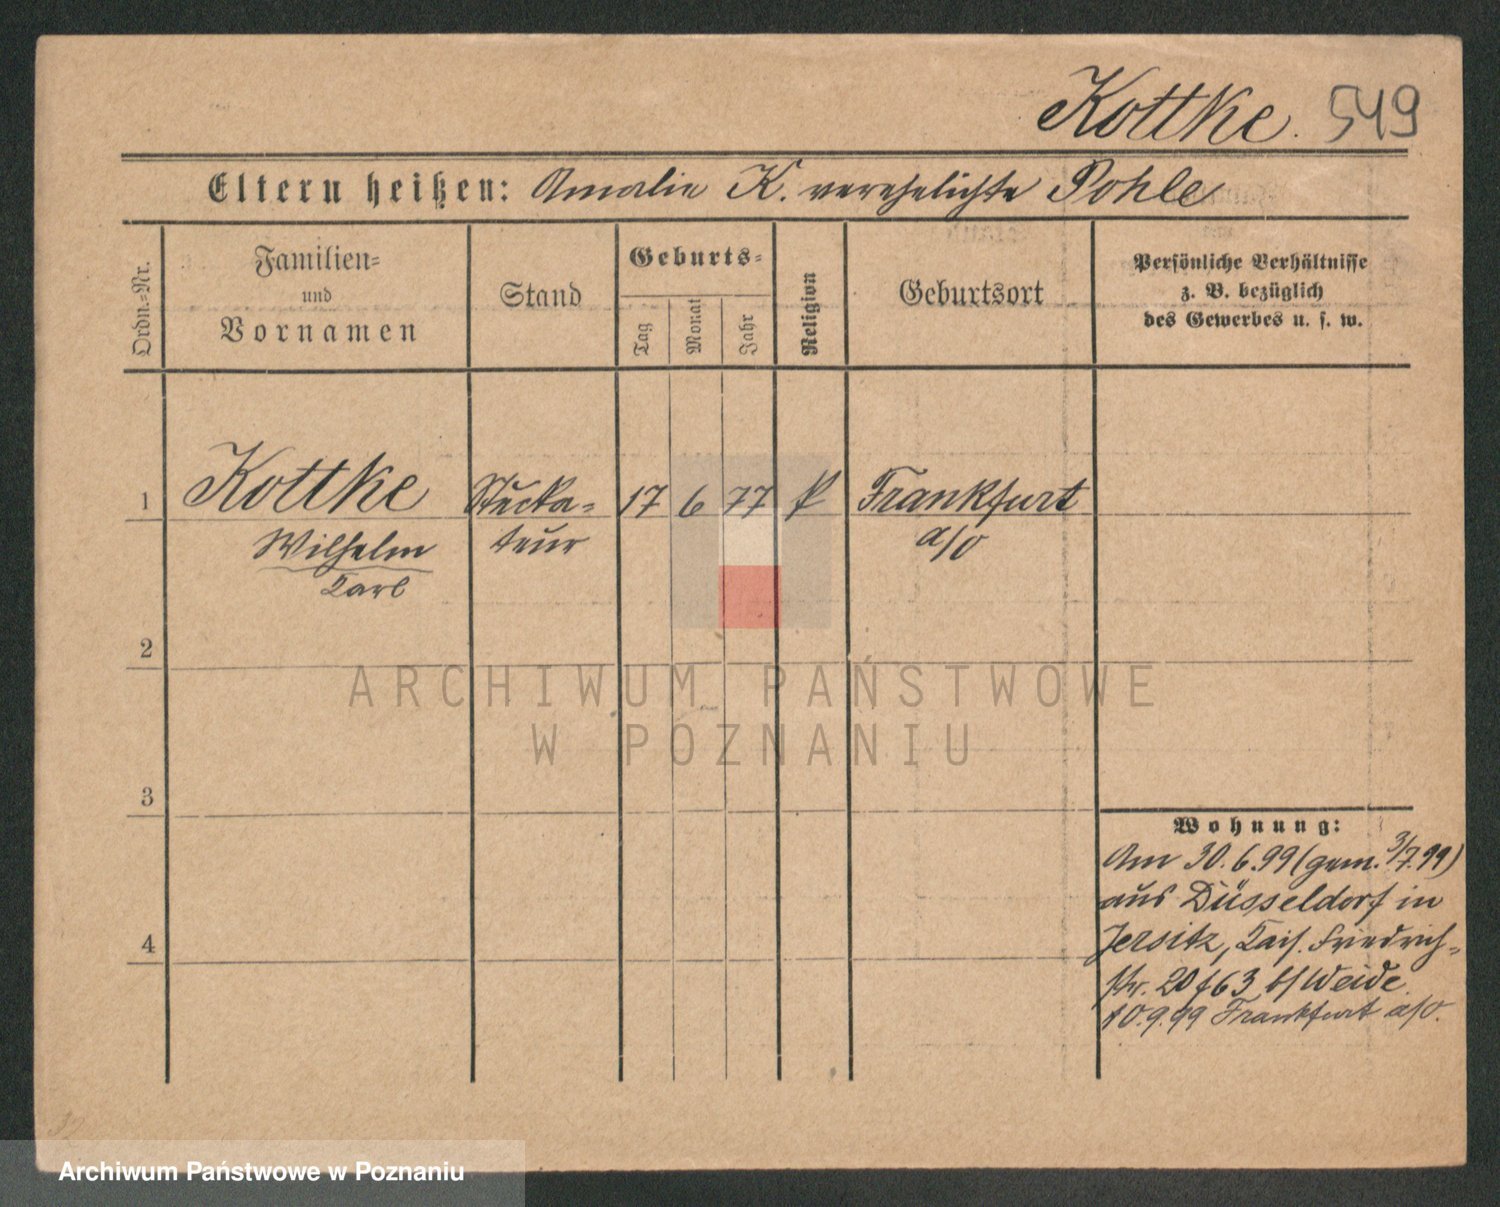 Kottke. 549
Eltern heißen: Amalie K. verehelichte Pohle
Ordn.=Nr.
Familien=
und
Vornamen
Stand
Geburts=
Tag
Monat
Jahr
Religion
Geburtsort
Persönliche Verhältnisse
z. B. bezüglich
des Gewerbes u. s. w.
1 Kottke Stucka= 17 6 77 Frankfurt
Wilhelm teur a/O
Karl
2
ARCHIWUM PAŃSTWOWE
W POZNANIU
3
Wohnung:
Am 30.6.99 (gem. 3/7.99)
aus Düsseldorf in
4
Jersitz, Kais. Friedrich=
str. 20 f 63 b/ Weide.
10.9.99 Frankfurt a/O.
Archiwum Państwowe w Poznaniu